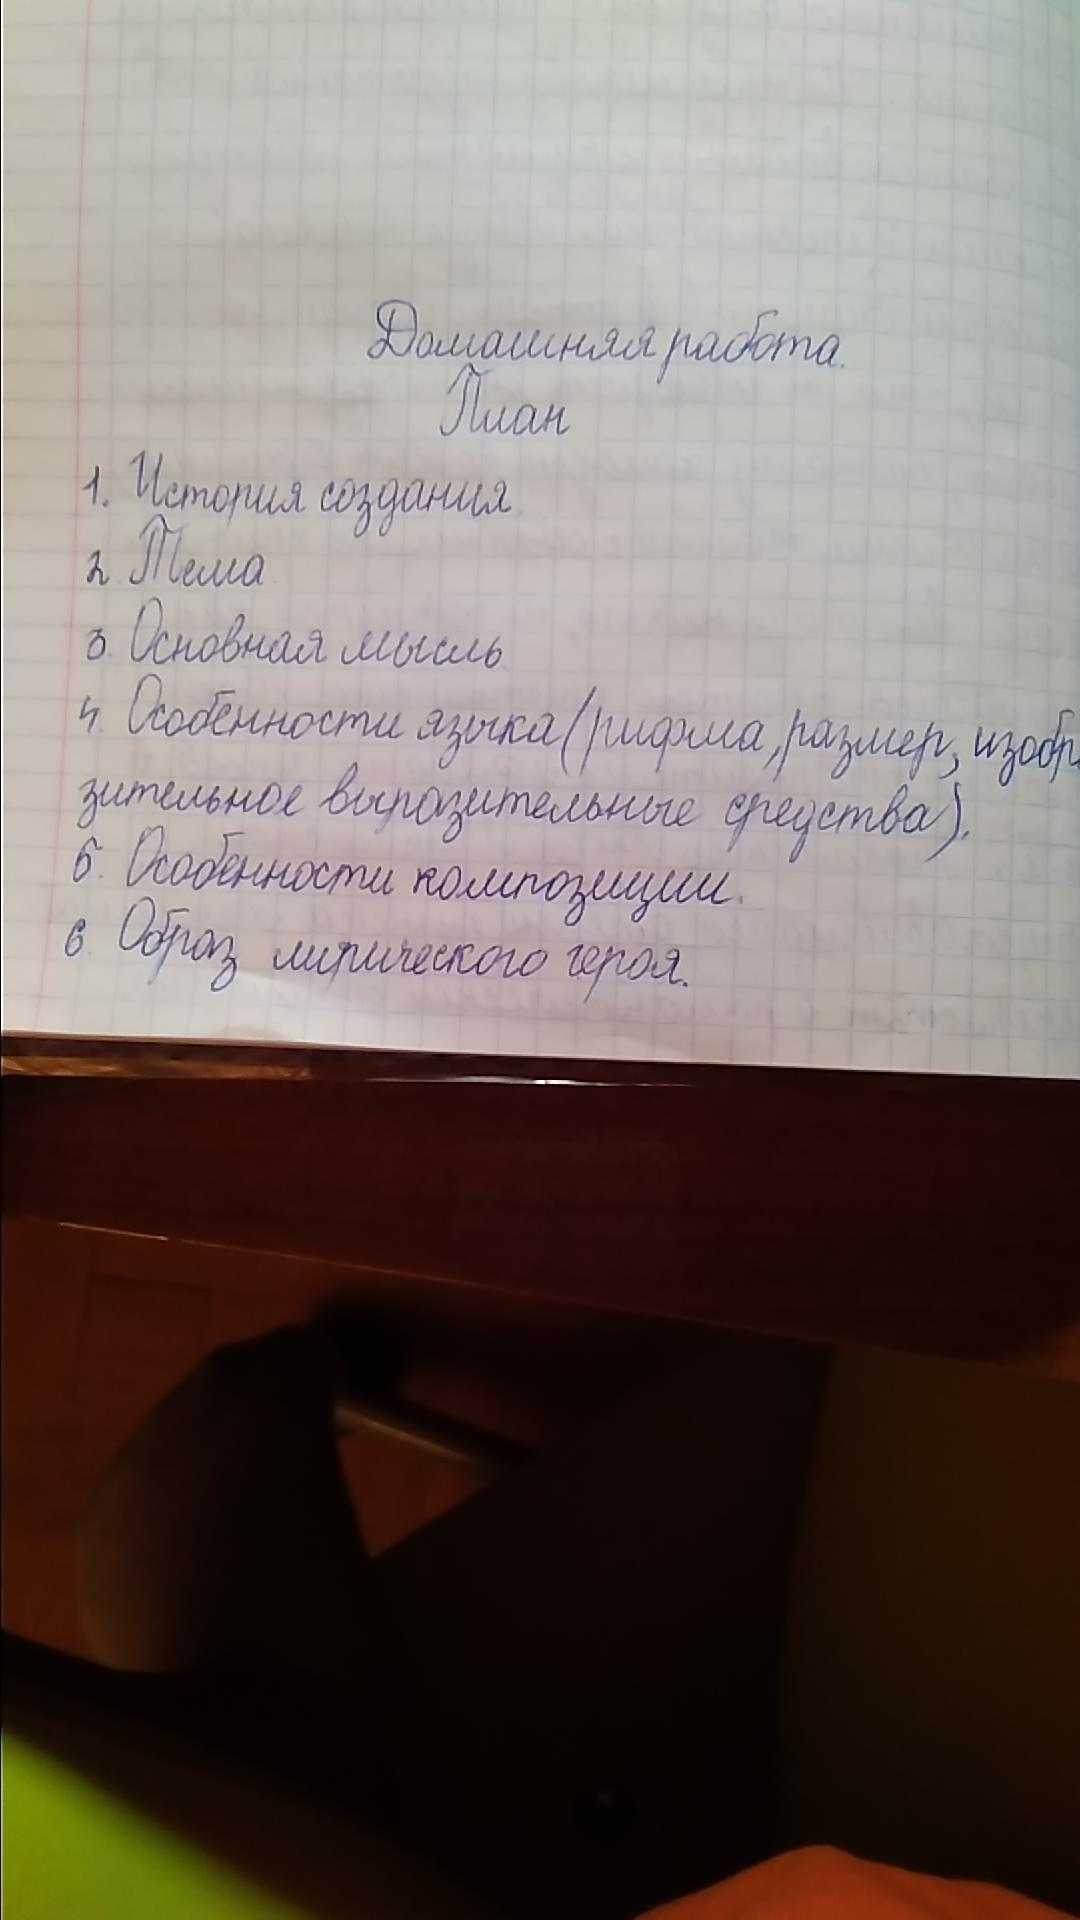 Домашняя работа.
План
1. История создания.
2. Тема
3. Основная мысль
4. Особенности языка (рифма, размер, изобр
зительное выразительные средства).
5. Особенности композиции.
6. Образ лирического героя.